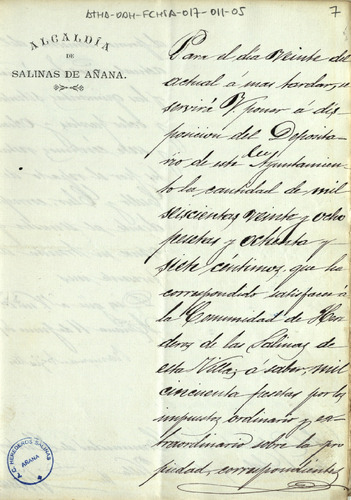 ATHA-DAH-FCHSA-017-011-05
7
ALCALDÍA
DE
SALINAS DE AÑANA.
Para el dia veinte del
actual á mas tardar, se
servirá V. poner á dis
posicion del Deposita
rio de este Ayuntamien
to la cantidad de mil
seiscientas veinte y ocho
pesetas y ochenta y
siete céntimos, que ha
correspondido satisfacer á
la Comunidad de Here
deros de las Salinas de
esta Villa, á saber, mil
cincuenta pesetas por los
impuestos ordinario y ex
traordinario sobre la pro
piedad, correspondientes
HEREDEROS SALINAS
AÑANA